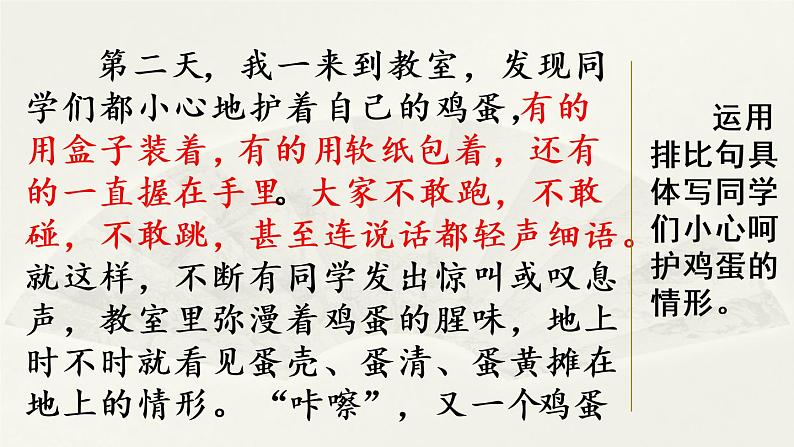 第二天，我一来到教室，发现同
学们都小心地护着自己的鸡蛋，有的
用盒子装着，有的用软纸包着，还有
的一直握在手里。大家不敢跑，不敢
碰，不敢跳，甚至连说话都轻声细语。
就这样，不断有同学发出惊叫或叹息
声，教室里弥漫着鸡蛋的腥味，地上
时不时就看见蛋壳、蛋清、蛋黄摊在
地上的情形。“咔嚓”，又一个鸡蛋
运用
排比句具
体写同学
们小心呵
护鸡蛋的
情形。